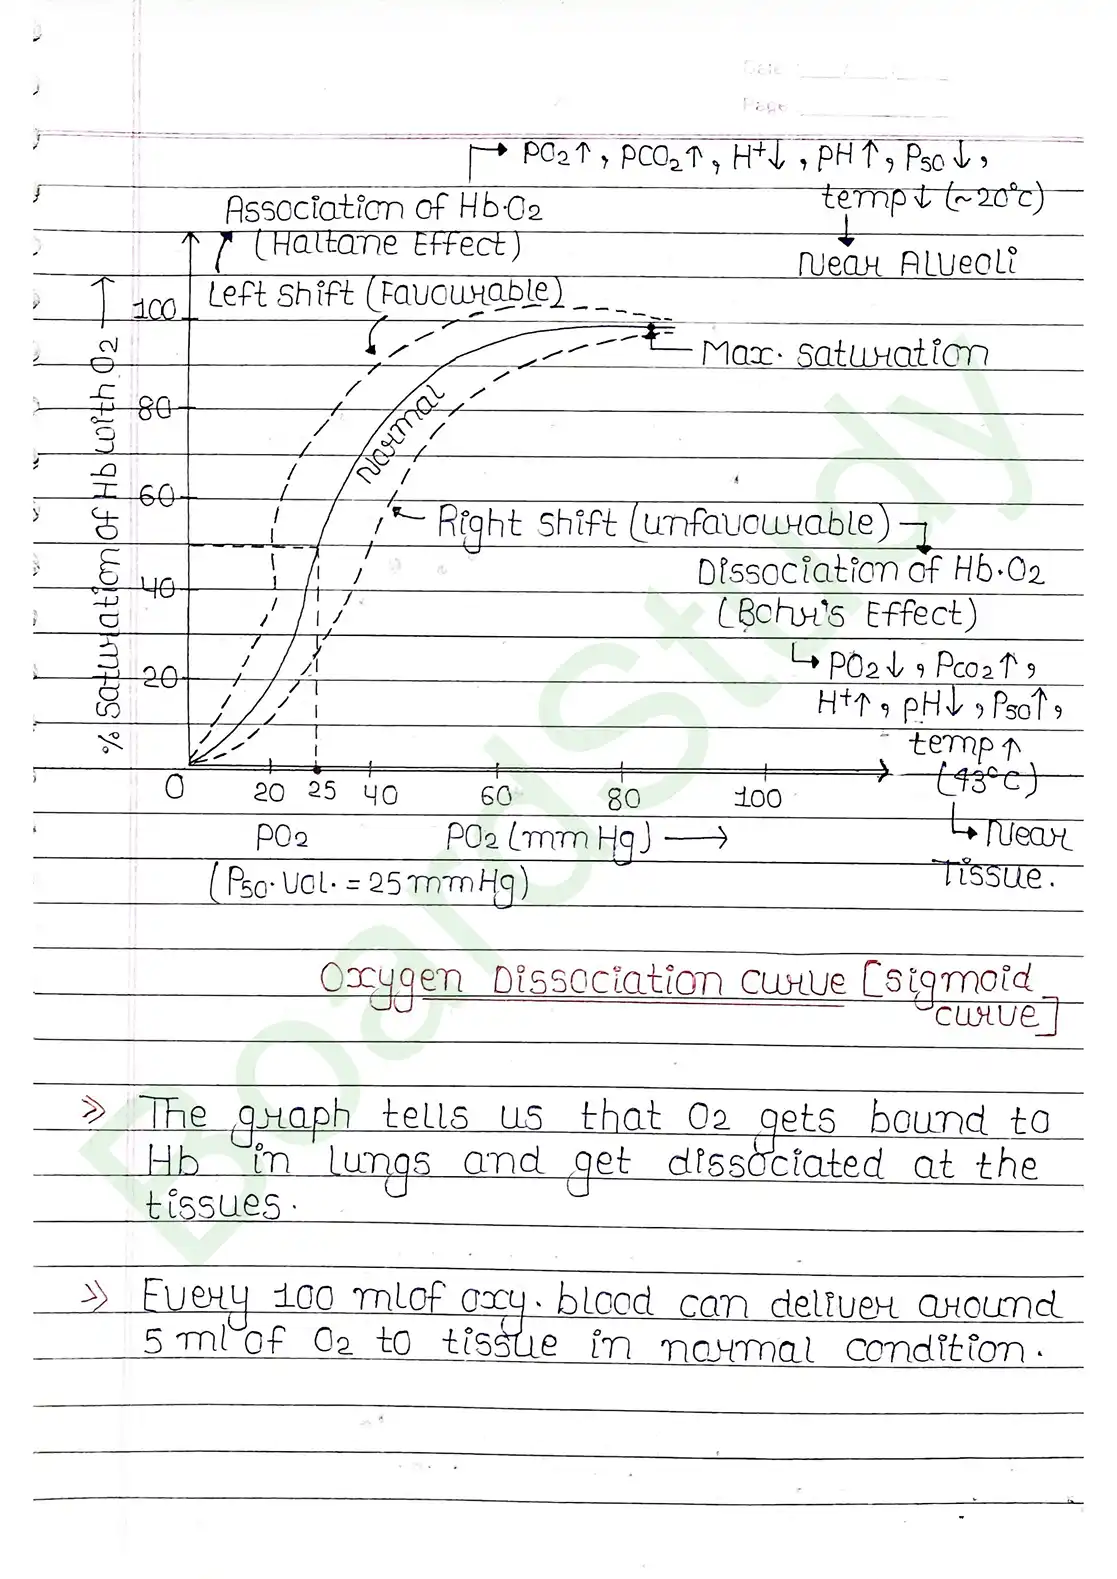 Date
Page
→ PO2↑, PCO2↑, H+↓, pH↑, P50↓,
temp↓ (~20°c)
Near Alveoli
Association of Hb·O2
(Haltane Effect)
Left shift (Favourable)
% Saturation of Hb with O2 →
100
80
60
40
20
0
Normal
Max. saturation
Right shift (unfavourable)
Dissociation of Hb·O2
(Bohr's Effect)
↳ PO2↓, PCO2↑,
H+↑, pH↓, P50↑,
temp↑
(43°c)
↳ Near
Tissue.
20 25 40 60 80 100
PO2 PO2 (mm Hg) →
(P50·Val. = 25mmHg)
Oxygen Dissociation curve [sigmoid
curve]
» The graph tells us that O2 gets bound to
Hb in lungs and get dissociated at the
tissues.
» Every 100 ml of oxy. blood can deliver around
5 ml of O2 to tissue in normal condition.
BoardStudy